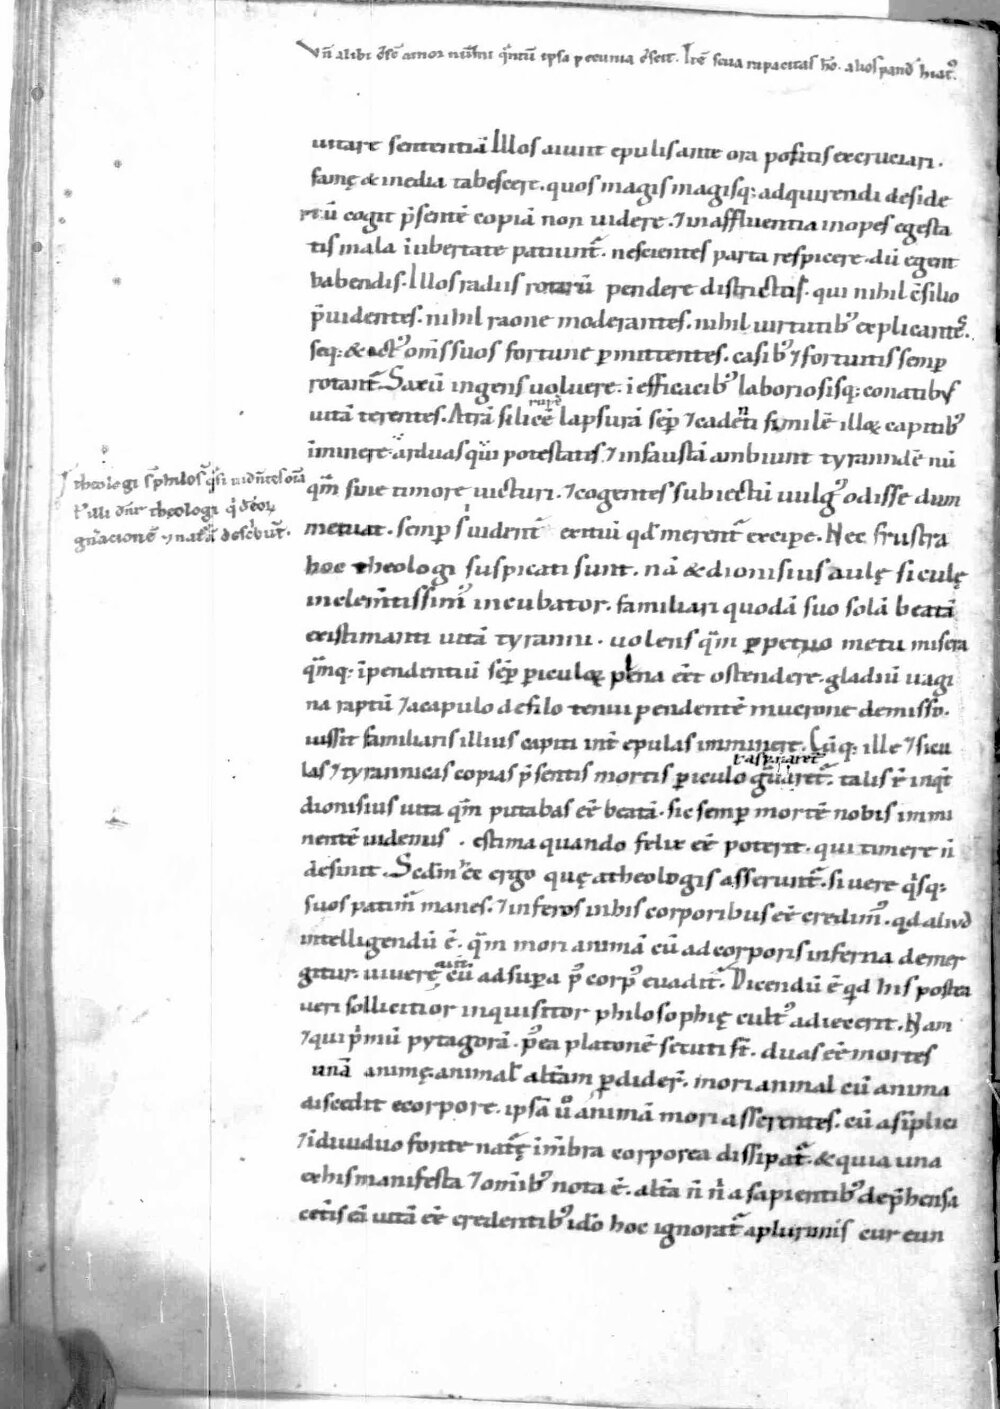 Vn̄ alibi cresc̄ amor nūmi q̄ntū ipsa pecunia crescit. Itē seua rapacitas
uitare sententiā Illos aiunt epulis ante ora positis excruciari.
famę & inedia tabescere. quos magis magisq; adquirendi deside
riū cogit p̄sentē copiā non uidere. ⁊ in affluentia inopes egesta
tis mala i ubertate patiunt᷑. nescientes parta respicere. dū egent
habendis. Illos radiis rotarū pendere districtus. qui nihil c̄silio
p̄uidentes. nihil raone moderantes. nihil uirtutibꝰ explicantes.
seq; & actꝰ om̄s suos fortune ꝑmittentes. casibꝰ ⁊ fortuitis semꝑ
rotant᷑. Saxū ingens uoluere. i efficacibꝰ laboriosisq; conatibus
uitā terentes. Atrā silicē lapsurā seꝑ ⁊ cadenti similē illoꝝ capitibꝰ
iminere. arduas qui potestates ⁊ infaustā ambiunt tyrannidē nū
qm̄ sine timore uicturi. ⁊ cogentes subiectū uulgꝰ odisse dum
metuat. semꝑ s̄ uidetnt᷑ exitiū qd̄ merent᷑ excipe. Nec frustra
hoc theologi suspicati sunt. nā & dionisius aulę siculę
inclem̄tissimꝰ incubator. familiari quodā suo solā beatā
existimanti uitā tyranni. uolens q̄m ꝑpetuo metu misera
q̄mq; īpendentiū seꝑ ꝑiculoꝝ plena eēt ostendere. gladiū uagi
na raptū ⁊ a capulo de filo tenui pendentē mucrone demisso.
iussit familiaris illius capiti int̄ epulas imminere. Cūq; ille ⁊ sicu
las ⁊ tyrannicas copias p̄sentis mortis ꝑiculo grauaret᷑. talis ē inq̇t
dionisius uita q̄m putabas eē beatā. sic semꝑ mortē nobis immi
nentē uidemus. estima quando felix eē poterit. qui timere n̄
desinit. Sedm̄ hec ergo quę a theologis asserunt᷑. si uere q̇sq;
suos patim᷑ manes. ⁊ inferos in his corporibus eē credimꝰ. qd aliud
intelligendū ē. q̄m mori animā cū ad corporis inferna demer
gitur. uiuere aut̄ cū ad supera p̄ corpꝰ euadit. Dicendū ē qd his postea
ueri sollicitior inquisitor philosophię cultꝰ adiecerit. Nam
⁊ qui p̄mū pytagorā. p̄ea platonē secuti st̄. duas eē mortes
unā animę. animal' altam ꝑdider᷑. mori animal cū anima
discedit e corpore. ipsā ū animā mori asserentes. cū a sīplici
⁊ idiuiduo fonte natę ī mēbra corporea dissipat᷑. & quia una
ex his manifesta ⁊ om̄ibꝰ nota ē. altā n̄ n̄ a sapientibꝰ dep̄hensa
cet̄is eā uitā eē credentibꝰ id̄o hoc ignorat᷑ a plurimis cur eun
theologi s̄ philos
t᷑ illi dn̄r theologi q̇ deoꝝ
gn̄acionē ⁊ nat᷑ā describūt.